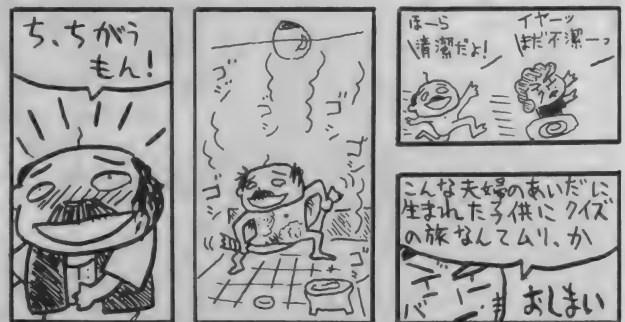 ち、ちがう
もん!
ゴシ
ゴシ
ゴシ
ゴシ
ほーら
清潔だよ!
イヤーッ
まだ不潔ーっ
こんな夫婦のあいだに
生まれた子供にクイズ
の旅なんてムリ、か
おしまい